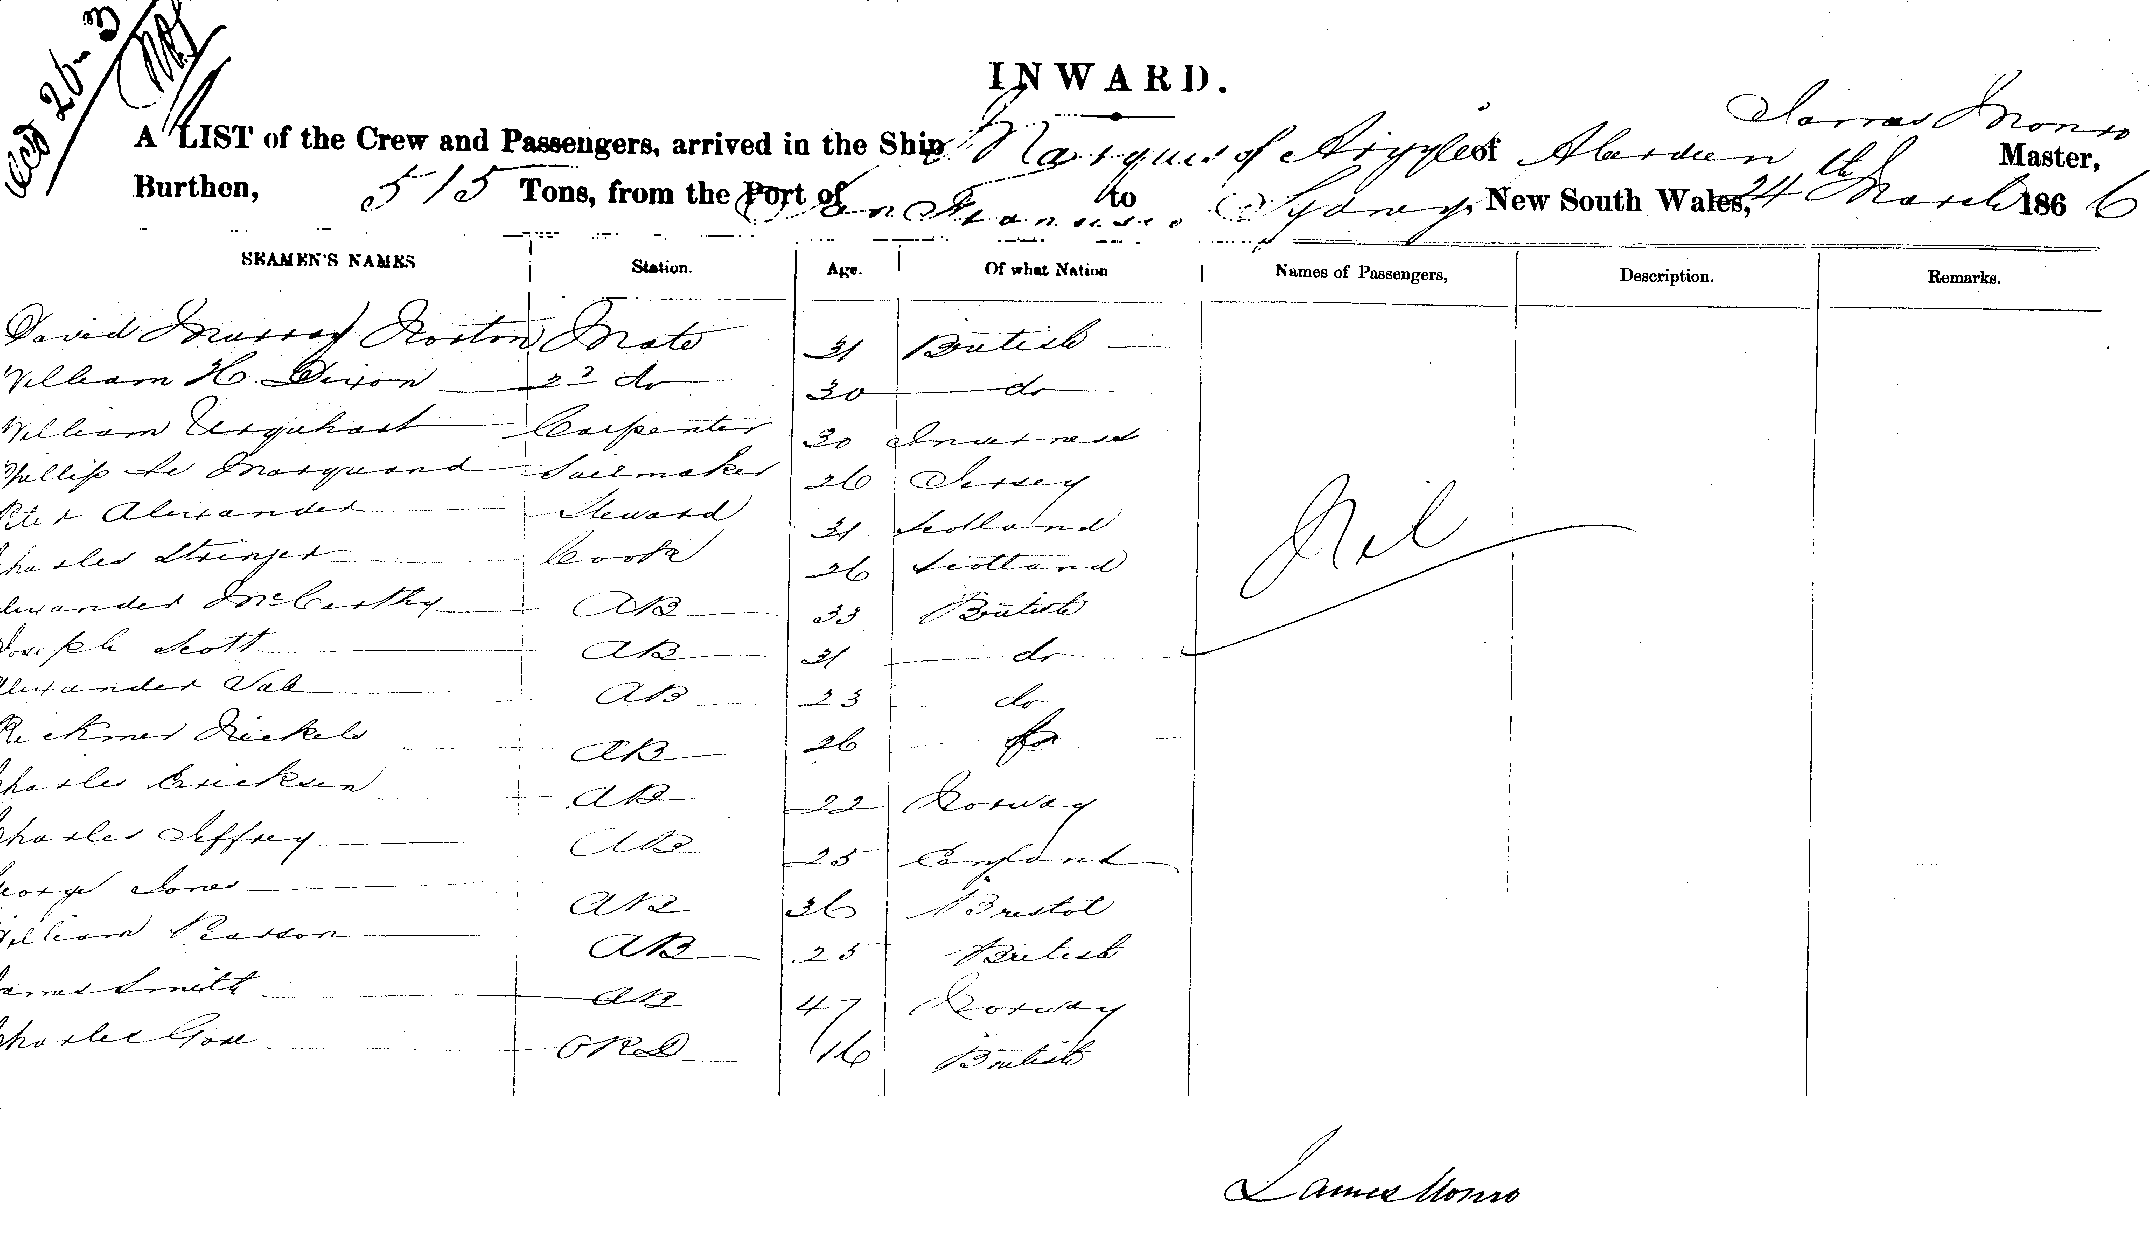 26-3
INWARD.
James Monro
A LIST of the Crew and Passengers, arrived in the Ship Marquis of Argyle of Aberdeen Master,
Burthen, 515 Tons, from the Port of San Francisco to Sydney New South Wales, 24th March 1866
SEAMEN'S NAMES Station. Age. Of what Nation Names of Passengers, Description. Remarks.
David Murray Norton Mate 31 British
William H. Dixon 2d do 30 do
William Urquhart Carpenter 30 Inverness
Phillip Le Marquand Sailmaker 26 Jersey
Peter Alexander Steward 31 Scotland
Charles Stringer Cook 26 Scotland
Nil
Alexander McCarthy AB 33 British
Joseph Scott AB 31 do
Alexander AB 23 do
Rickmer Nickels AB 26 do
Charles Ericksen AB 22 Norway
Charles Jeffrey AB 25 England
George Jones AB 36 Bristol
William Pearson AB 25 British
James Smith AB 47 Norway
Charles ORD 16 British
James Monro